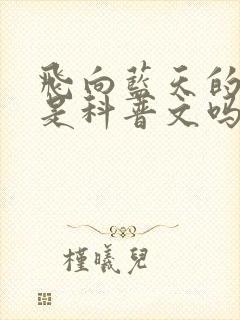 飛向藍天的
是科普文嗎
槿曦兒